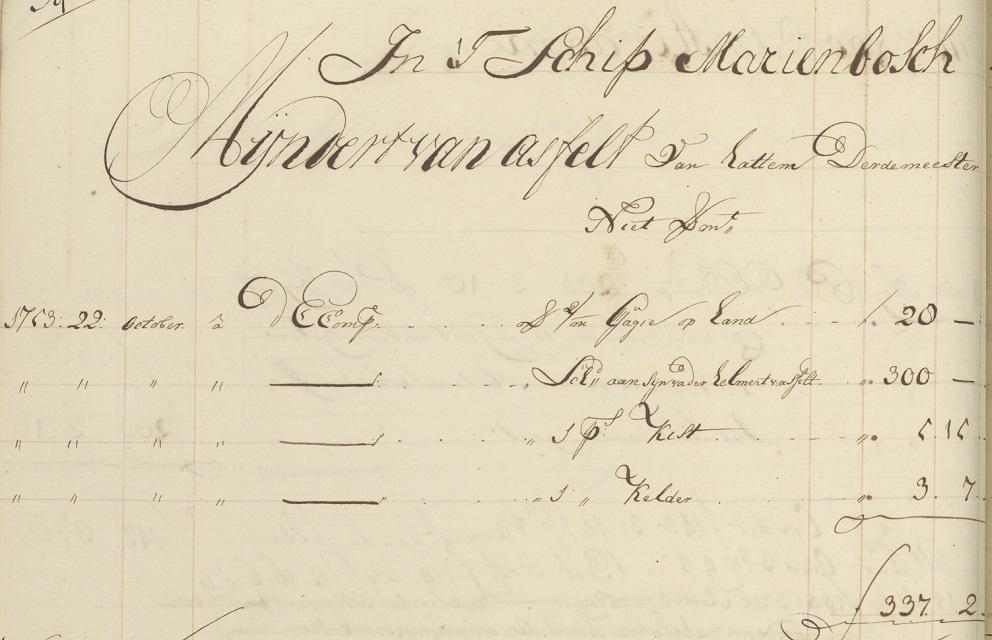 In 'T Schip Marienbosch
Mijndert van asfelt Van hattem Derdemeester
Niet Vont
1753: 22: october. â D'E Comp. . . . . . . pr 2/m Gagie op Land . . . ƒ. 20 —
" " " " ——— . . . . " Sch" aan sijn vader helmert v: asfelt " 300 —
" " " " ——— . . . . " 1 ps Kist . . . " 5. 15
" " " " ——— . . . . " 1 " Kelder . . . " 3. 7.
ƒ 337. 2.